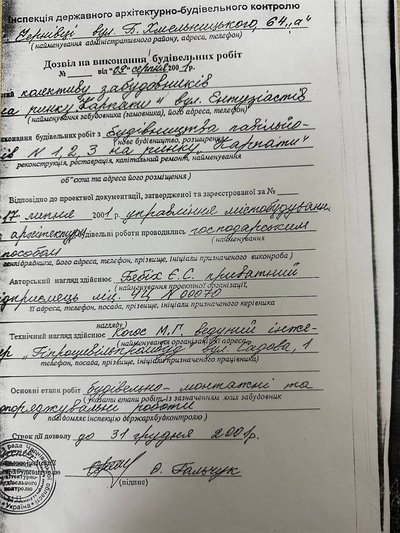 Інспекція державного архітектурно-будівельного контролю
вул. Б. Хмельницького, 64 "а"
(найменування адміністративного району, адреса, телефон)
Дозвіл на виконання будівельних робіт
№ від "08" серпня 2001 р.
колективу забудовників
на ринку "Карпати" вул. Ентузіастів
(найменування забудовника (замовника), його адреса, телефон)
конання будівельних робіт з будівництва павільйо-
(нове будівництво, розширення,
ів N 1, 2, 3 на ринку "Карпати"
реконструкція, реставрація, капітальний ремонт, найменування
об"єкта та адреса його розміщення)
Відповідно до проектної документації, затвердженої та зареєстрованої за №
17 липня 2001 р. управління містобудуван
архітектури будівельні роботи проводились господарським
(найменування
способом
генпідрядника, його адреса, телефон, прізвище, ініціали призначеного виконроба)
Авторський нагляд здійснює Бебіх Є.С. приватний
(найменування проектної організації,
ідприємець N 00070
її адреса, телефон, посада, прізвище, ініціали призначеного керівника
нагляду)
Технічний нагляд здійснює М.Г. ведучий інже-
(найменування організації адреса
ер вул. Садова, 1
телефон, посада, прізвище, ініціали призначеного працівника)
Основні етапи робіт будівельно-монтажні та
(указати етапи робіт із зазначенням яких забудовник
опоряджувальні роботи
повідомляє інспекцію держархбудконтролю)
Строк дії дозволу до 31 грудня 2001 р.
О. Гальчук
(підпис)